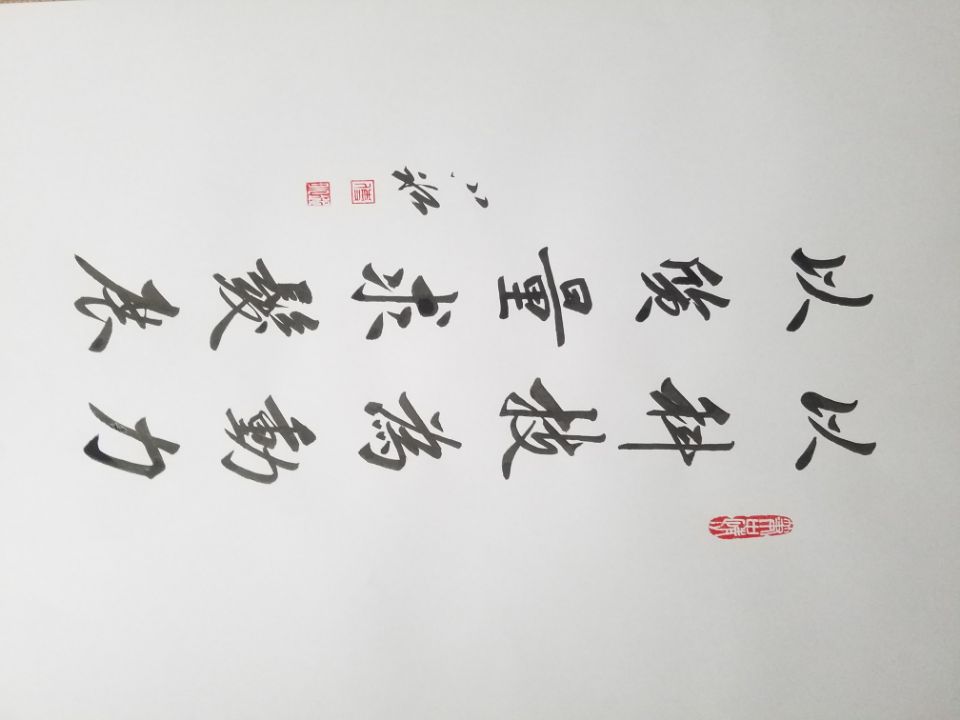 以科技為動力
以質量求發展